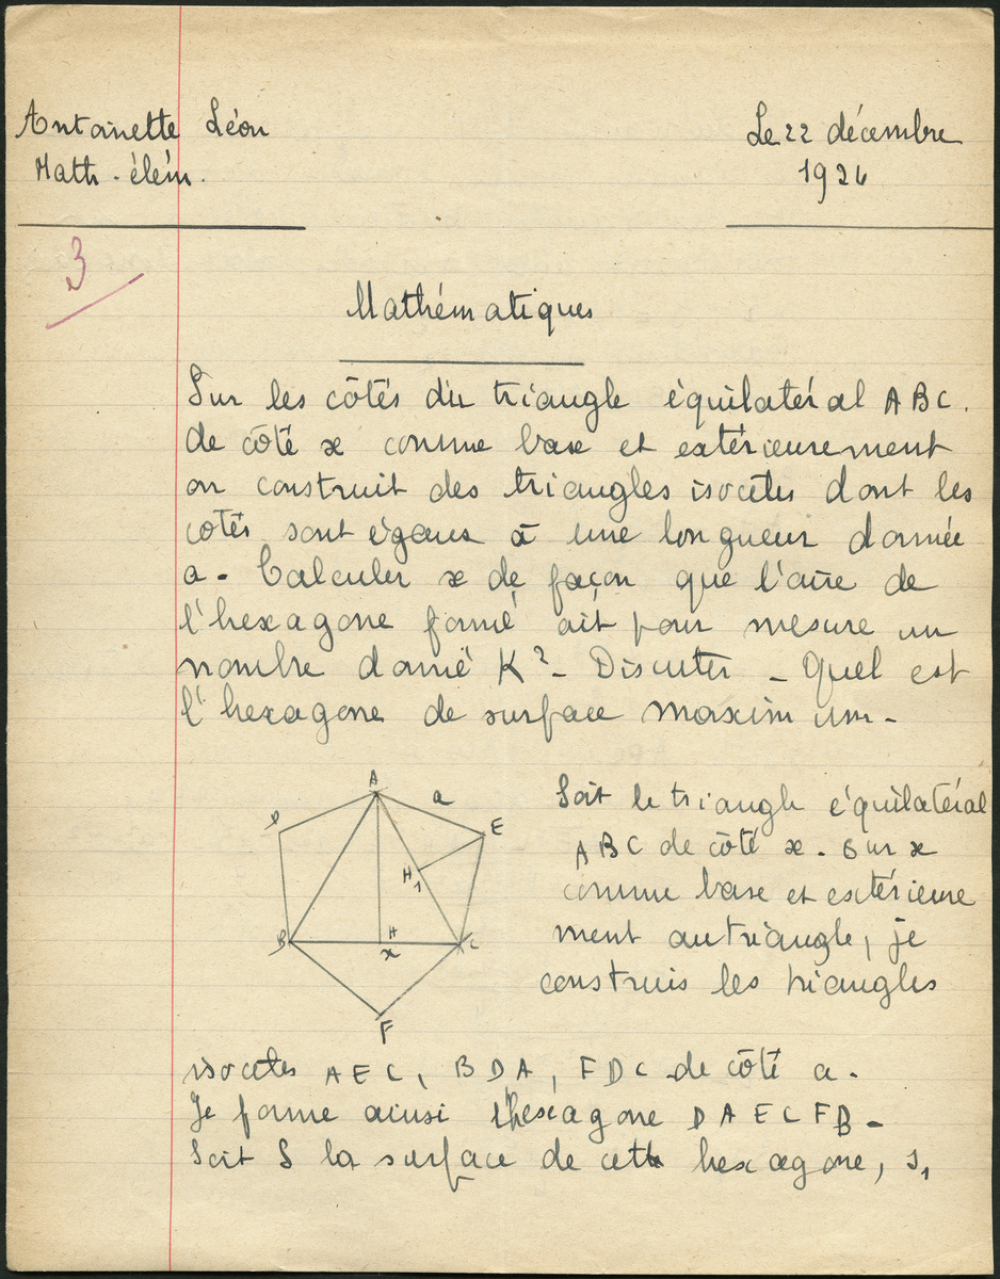 Antoinette Léon
Le 22 décembre
Math. élém.
1926
3
Mathématiques
Sur les côtés du triangle équilatéral ABC.
de côté x comme base et extérieurement
on construit des triangles isocèles dont les
côtés sont égaux à une longueur donnée
a. Calculer x de façon que l'aire de
l'hexagone formé ait pour mesure un
nombre donné K². Discuter - Quel est
l'hexagone de surface maximum.
A
a
D
E
H1
B
H
x
C
F
Soit le triangle équilatéral
ABC de côté x. Sur x
comme base et extérieure
ment au triangle, je
construis les triangles
isocèles AEC, BDA, FDC de côté a.
Je forme ainsi l'hexagone DAECFB.
Soit S la surface de cette hexagone, S1